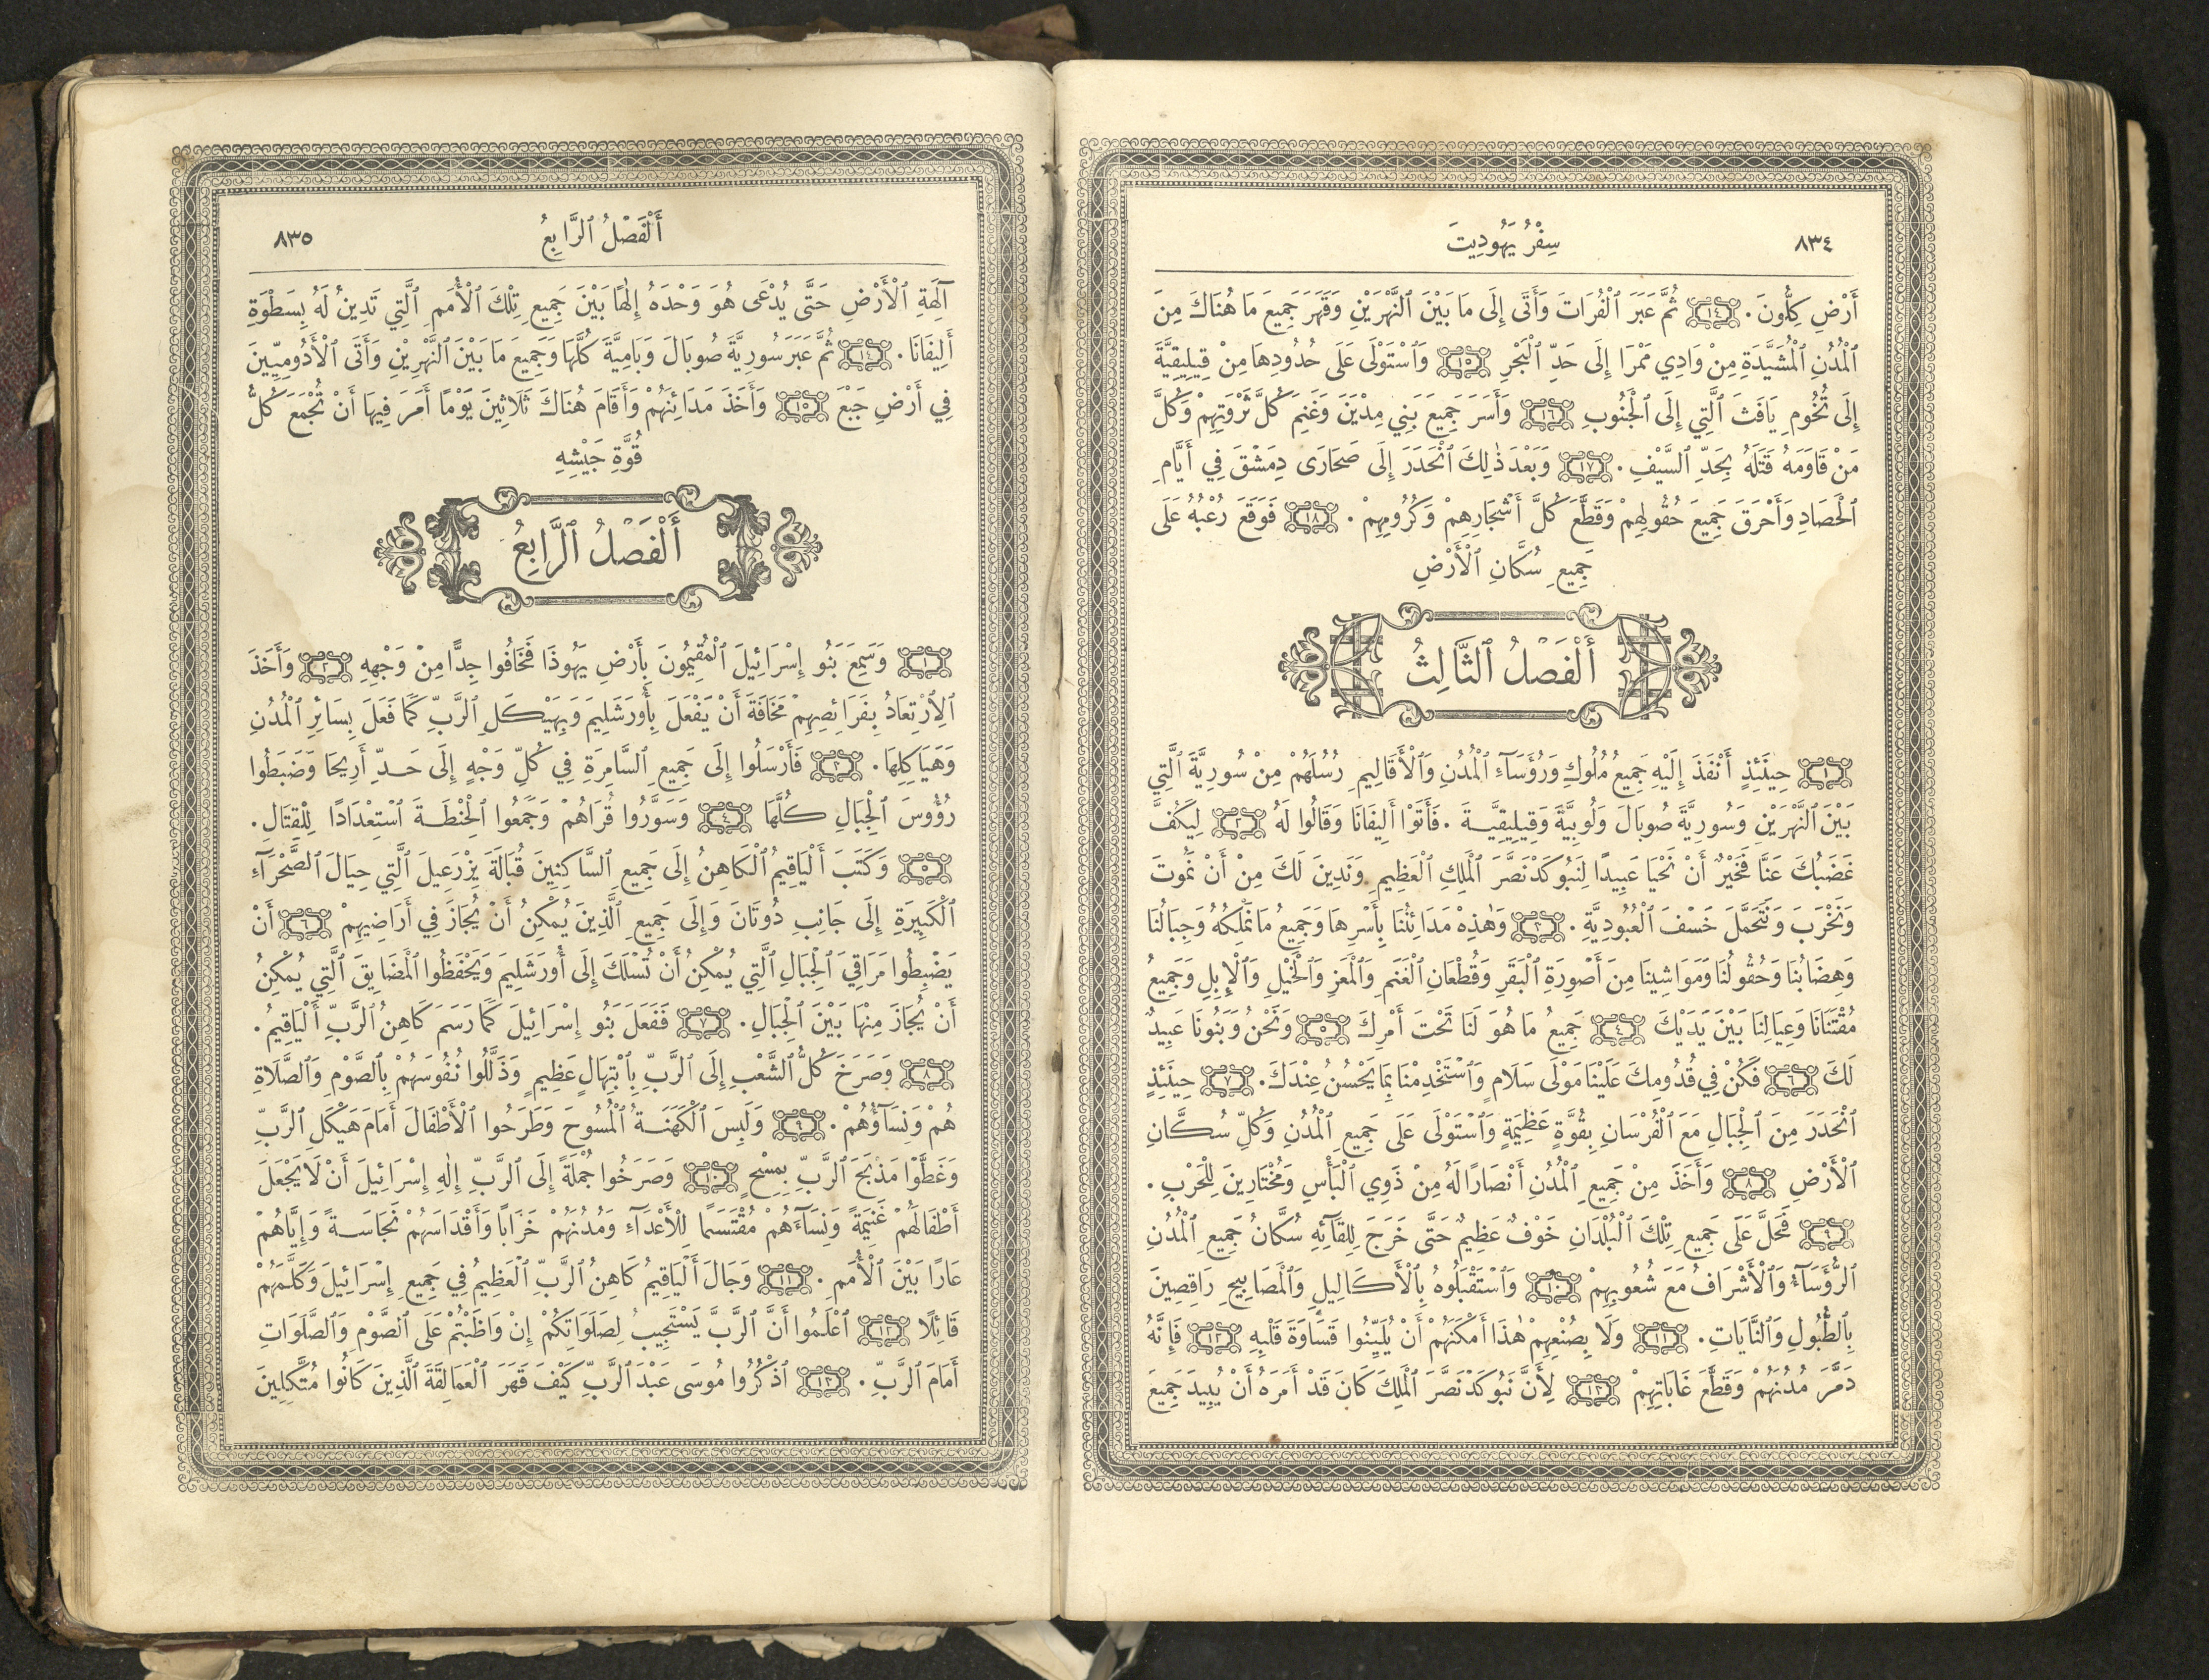 ٨٣٤
سِفْرُ يَهُودِيتَ
أَرْضِ كِلُّونَ. ﴿١٤﴾ ثُمَّ عَبَرَ ٱلْفُرَاتَ وَأَتَى إِلَى مَا بَيْنَ ٱلنَّهْرَيْنِ وَقَهَرَ جَمِيعَ مَا هُنَاكَ مِنَ
ٱلْمُدُنِ ٱلْمُشَيَّدَةِ مِنْ وَادِي مَمْرَا إِلَى حَدِّ ٱلْبَحْرِ ﴿١٥﴾ وَٱسْتَوْلَى عَلَى حُدُودِهَا مِنْ قِيلِيقِيَّةَ
إِلَى تُخُومِ يَافَثَ ٱلَّتِي إِلَى ٱلْجَنُوبِ ﴿١٦﴾ وَأَسَرَ جَمِيعَ بَنِي مِدْيَنَ وَغَنِمَ كُلَّ ثَرْوَتِهِمْ وَكُلَّ
مَنْ قَاوَمَهُ قَتَلَهُ بِحَدِّ ٱلسَّيْفِ. ﴿١٧﴾ وَبَعْدَ ذٰلِكَ ٱنْحَدَرَ إِلَى صَحَارَى دِمَشْقَ فِي أَيَّامِ
ٱلْحَصَادِ وَأَحْرَقَ جَمِيعَ حُقُولِهِمْ وَقَطَّعَ كُلَّ أَشْجَارِهِمْ وَكُرُومِهِمْ. ﴿١٨﴾ فَوَقَعَ رُعْبُهُ عَلَى
جَمِيعِ سُكَّانِ ٱلْأَرْضِ
أَلْفَصْلُ ٱلثَّالِثُ
﴿١﴾ حِينَئِذٍ أَنْفَذَ إِلَيْهِ جَمِيعُ مُلُوكِ وَرُؤَسَآءِ ٱلْمُدُنِ وَٱلْأَقَالِيمِ رُسُلَهُمْ مِنْ سُورِيَّةَ ٱلَّتِي
بَيْنَ ٱلنَّهْرَيْنِ وَسُورِيَّةَ صُوبَالَ وَلُوبِيَّةَ وَقِيلِيقِيَّةَ. فَأَتَوْا أَلِيفَانَا وَقَالُوا لَهُ ﴿٢﴾ لِيَكُفَّ
غَضَبُكَ عَنَّا فَخَيْرٌ أَنْ نَحْيَا عَبِيدًا لِنَبُوكَدْنَصَّرَ ٱلْمَلِكِ ٱلْعَظِيمِ وَنَدِينَ لَكَ مِنْ أَنْ نَمُوتَ
وَنَخْرَبَ وَنَتَحَمَّلَ خَسْفَ ٱلْعُبُودِيَّةِ. ﴿٣﴾ وَهٰذِهْ مَدَائِنُنَا بِأَسْرِهَا وَجَمِيعُ مَا نَمْلِكُهُ وَجِبَالُنَا
وَهِضَابُنَا وَحُقُولُنَا وَمَوَاشِينَا مِنَ أَصْوِرَةِ ٱلْبَقَرِ وَقُطْعَانِ ٱلْغَنَمِ وَٱلْمَعَزِ وَٱلْخَيْلِ وَٱلْإِبِلِ وَجَمِيعُ
مُقْتَنَانَا وَعِيَالِنَا بَيْنَ يَدَيْكَ ﴿٤﴾ جَمِيعُ مَا هُوَ لَنَا تَحْتَ أَمْرِكَ ﴿٥﴾ وَنَحْنُ وَبَنُونَا عَبِيدٌ
لَكَ ﴿٦﴾ فَكُنْ فِي قُدُومِكَ عَلَيْنَا مَوْلَى سَلَامٍ وَٱسْتَخْدِمْنَا بِمَا يَحْسُنُ عِنْدَكَ. ﴿٧﴾ حِينَئِذٍ
ٱنْحَدَرَ مِنَ ٱلْجِبَالِ مَعَ ٱلْفُرْسَانِ بِقُوَّةٍ عَظِيمَةٍ وَٱسْتَوْلَى عَلَى جَمِيعِ ٱلْمُدُنِ وَكُلِّ سُكَّانِ
ٱلْأَرْضِ ﴿٨﴾ وَأَخَذَ مِنْ جَمِيعِ ٱلْمُدُنِ أَنْصَارًا لَهُ مِنْ ذَوِي ٱلْبَأْسِ وَمُخْتَارِينَ لِلْحَرْبِ.
﴿٩﴾ فَحَلَّ عَلَى جَمِيعِ تِلْكَ ٱلْبُلْدَانِ خَوْفٌ عَظِيمٌ حَتَّى خَرَجَ لِلِقَآئِهِ سُكَّانُ جَمِيعِ ٱلْمُدُنِ
ٱلرُّؤَسَآءُ وَٱلْأَشْرَافُ مَعَ شُعُوبِهِمْ ﴿١٠﴾ وَٱسْتَقْبَلُوهُ بِٱلْأَكَالِيلِ وَٱلْمَصَابِيحِ رَاقِصِينَ
بِٱلطُّبُولِ وَٱلنَّايَاتِ. ﴿١١﴾ وَلَا بِصُنْعِهِمْ هٰذَا أَمْكَنَهُمْ أَنْ يُلَيِّنُوا قَسَاوَةَ قَلْبِهِ ﴿١٢﴾ فَإِنَّهُ
دَمَّرَ مُدُنَهُمْ وَقَطَّعَ غَابَاتِهِمْ ﴿١٣﴾ لِأَنَّ نَبُوكَدْنَصَّرَ ٱلْمَلِكَ كَانَ قَدْ أَمَرَهُ أَنْ يُبِيدَ جَمِيعَ
أَلْفَصْلُ ٱلرَّابِعُ
٨٣٥
آلِهَةِ ٱلْأَرْضِ حَتَّى يُدْعَى هُوَ وَحْدَهُ إِلٰهًا بَيْنَ جَمِيعِ تِلْكَ ٱلْأُمَمِ ٱلَّتِي تَدِينُ لَهُ بِسَطْوَةِ
أَلِيفَانَا. ﴿١٤﴾ ثُمَّ عَبَرَ سُورِيَّةَ صُوبَالَ وَبَامِيَّةَ كُلَّهَا وَجَمِيعَ مَا بَيْنَ ٱلنَّهْرَيْنِ وَأَتَى ٱلْأَدُومِيِّينَ
فِي أَرْضِ جَبْعَ ﴿١٥﴾ وَأَخَذَ مَدَائِنَهُمْ وَأَقَامَ هُنَاكَ ثَلَاثِينَ يَوْمًا أَمَرَ فِيهَا أَنْ تُجْمَعَ كُلُّ
قُوَّةِ جَيْشِهِ
أَلْفَصْلُ ٱلرَّابِعُ
﴿١﴾ وَسَمِعَ بَنُو إِسْرَائِيلَ ٱلْمُقِيمُونَ بِأَرْضِ يَهُوذَا فَخَافُوا جِدًّا مِنْ وَجْهِهِ ﴿٢﴾ وَأَخَذَ
ٱلِٱرْتِعَادُ بِفَرَائِصِهِمْ مَخَافَةَ أَنْ يَفْعَلَ بِأُورَشَلِيمَ وَبِهَيْكَلِ ٱلرَّبِّ كَمَا فَعَلَ بِسَائِرِ ٱلْمُدُنِ
وَهَيَاكِلِهَا. ﴿٣﴾ فَأَرْسَلُوا إِلَى جَمِيعِ ٱلسَّامِرَةِ فِي كُلِّ وَجْهٍ إِلَى حَدِّ أَرِيحَا وَضَبَطُوا
رُؤُوسَ ٱلْجِبَالِ كُلَّهَا ﴿٤﴾ وَسَوَّرُوا قُرَاهُمْ وَجَمَعُوا ٱلْحِنْطَةَ ٱسْتِعْدَادًا لِلْقِتَالِ.
﴿٥﴾ وَكَتَبَ أَلْيَاقِيمُ ٱلْكَاهِنُ إِلَى جَمِيعِ ٱلسَّاكِنِينَ قُبَالَةَ يِزْرَعِيلَ ٱلَّتِي حِيَالَ ٱلصَّحْرَآءِ
ٱلْكَبِيرَةِ إِلَى جَانِبِ دُوتَانَ وَإِلَى جَمِيعِ ٱلَّذِينَ يُمْكِنُ أَنْ يُجَازَ فِي أَرَاضِيهِمْ ﴿٦﴾ أَنْ
يَضْبِطُوا مَرَاقِيَ ٱلْجِبَالِ ٱلَّتِي يُمْكِنُ أَنْ تُسْلَكَ إِلَى أُورَشَلِيمَ وَيَحْفَظُوا ٱلْمَضَايِقَ ٱلَّتِي يُمْكِنُ
أَنْ يُجَازَ مِنْهَا بَيْنَ ٱلْجِبَالِ. ﴿٧﴾ فَفَعَلَ بَنُو إِسْرَائِيلَ كَمَا رَسَمَ كَاهِنُ ٱلرَّبِّ أَلْيَاقِيمُ.
﴿٨﴾ وَصَرَخَ كُلُّ ٱلشَّعْبِ إِلَى ٱلرَّبِّ بِٱبْتِهَالٍ عَظِيمٍ وَذَلَّلُوا نُفُوسَهُمْ بِٱلصَّوْمِ وَٱلصَّلَاةِ
هُمْ وَنِسَآؤُهُمْ. ﴿٩﴾ وَلَبِسَ ٱلْكَهَنَةُ ٱلْمُسُوحَ وَطَرَحُوا ٱلْأَطْفَالَ أَمَامَ هَيْكَلِ ٱلرَّبِّ
وَغَطَّوْا مَذْبَحَ ٱلرَّبِّ بِمِسْحٍ ﴿١٠﴾ وَصَرَخُوا جُمْلَةً إِلَى ٱلرَّبِّ إِلٰهِ إِسْرَائِيلَ أَنْ لَا يَجْعَلَ
أَطْفَالَهُمْ غَنِيمَةً وَنِسَآءَهُمْ مُقْتَسَمًا لِلْأَعْدَآءِ وَمُدُنَهُمْ خَرَابًا وَأَقْدَاسَهُمْ نَجَاسَةً وَإِيَّاهُمْ
عَارًا بَيْنَ ٱلْأُمَمِ. ﴿١١﴾ وَجَالَ أَلْيَاقِيمُ كَاهِنُ ٱلرَّبِّ ٱلْعَظِيمُ فِي جَمِيعِ إِسْرَائِيلَ وَكَلَّمَهُمْ
قَائِلًا ﴿١٢﴾ ٱعْلَمُوا أَنَّ ٱلرَّبَّ يَسْتَجِيبُ لِصَلَوَاتِكُمْ إِنْ وَاظَبْتُمْ عَلَى ٱلصَّوْمِ وَٱلصَّلَوَاتِ
أَمَامَ ٱلرَّبِّ. ﴿١٣﴾ ٱذْكُرُوا مُوسَى عَبْدَ ٱلرَّبِّ كَيْفَ قَهَرَ ٱلْعَمَالِقَةَ ٱلَّذِينَ كَانُوا مُتَّكِلِينَ